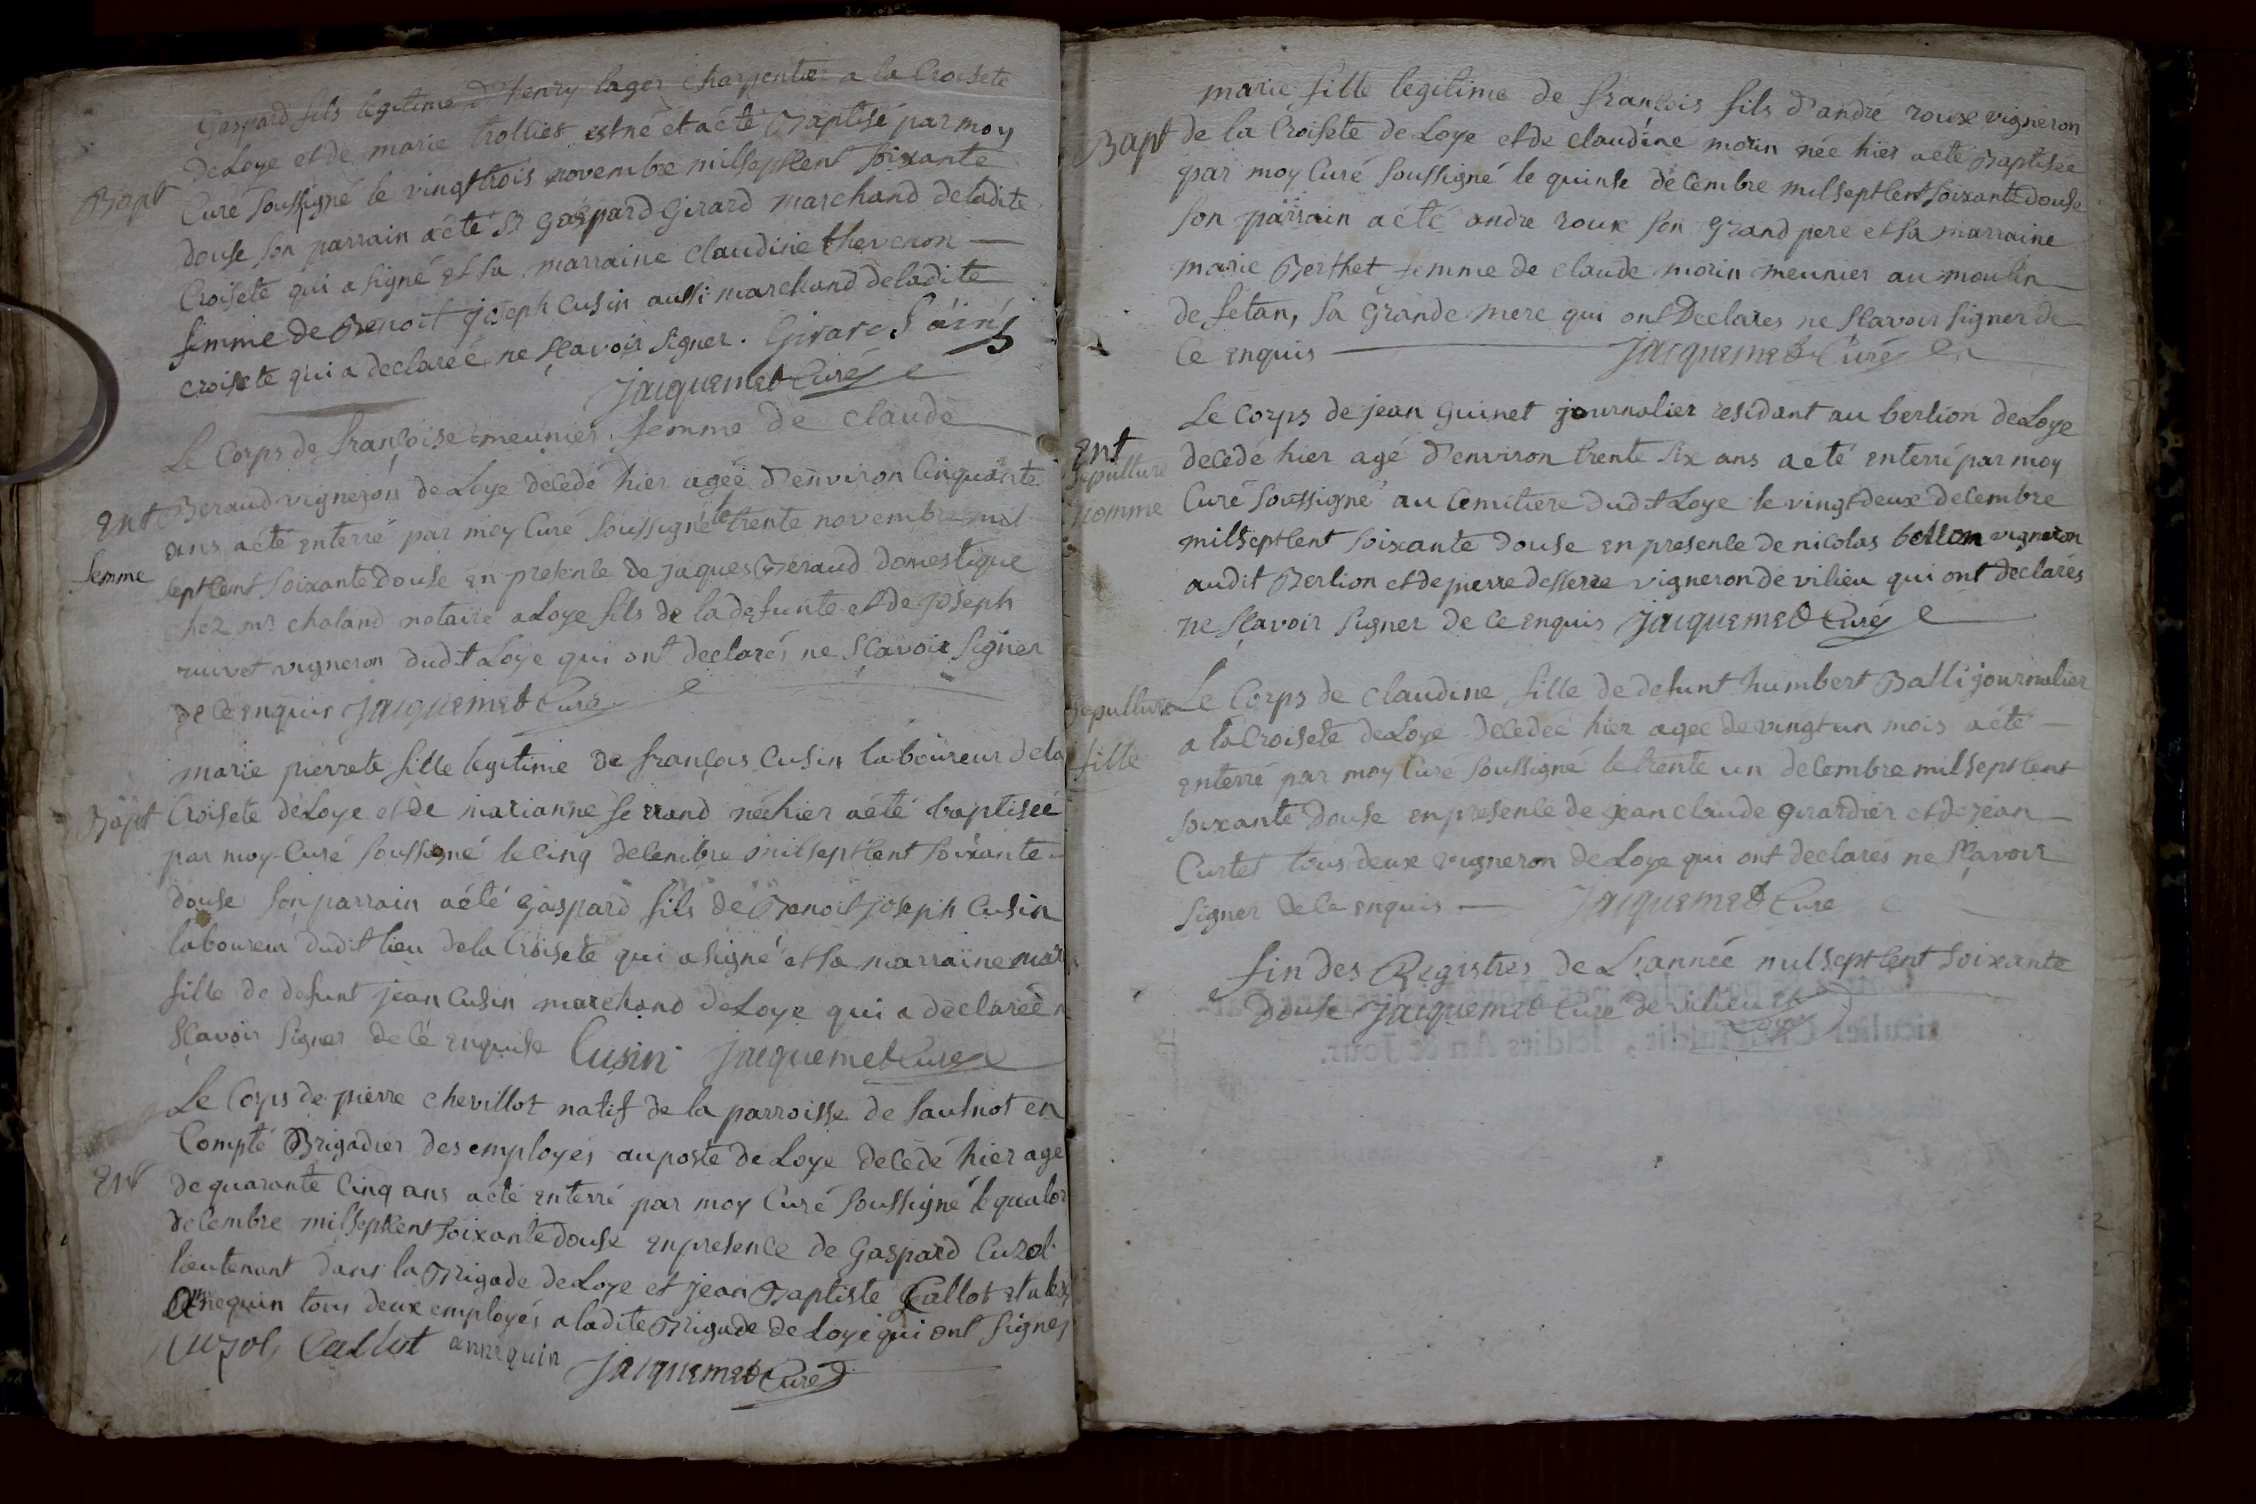 Gaspard fils legitime d'henry lager charpentier a la Croisete
de Loye et de marie trollier est né et a été Baptisé par moy
Bapt
Curé soussigné le vingt trois novembre mil sept cent soixante
douse son parrain a été Sr gaspard Girard marchand de ladite
Croisete qui a signé et sa marraine claudine thevenon
femme de Benoit joseph Cusin aussi marchand de ladite
croisete qui a declareé ne sçavoir signer. Girard l'ainé
jacquemet Curé
Le Corps de françoise meunier femme de claude
Ent
femme
Beraud vigneron de Loye decedé hier ageé d'environ Cinquante
ans a eté enterré par moy Curé soussigné le trente novembre mil
sept cent soixante douse en presence de jaques Beraud domestique
chez mr chaland notaire a Loye fils de la defunte et de joseph
ruivet vigneron dudit Loye qui ont declarés ne sçavoir signer
de ce enquis jacquemet Curé
marie pierrete fille legitime de françois Cusin laboureur de la
Bapt
Croisete de Loye et de marianne serrand née hier a été baptiseé
par moy Curé soussigné le cinq decembre mil sept cent soixante
douse son parrain a été gaspard fils de Benoit joseph Cusin
laboureur dudit lieu de la Croisete qui a signé et sa marraine
fille de defunt jean Cusin marchand de Loye qui a declareé
sçavoir signer de ce enquise Cusin jacquemet Curé
Le Corps de pierre chevillot natif de la parroisse de saulnot en
Compté Brigadier des employés au poste de Loye decedé hier agé
Ent
de quarante cinq ans a été enterré par moy Curé soussigné le
decembre mil sept cent soixante douse en presence de Gaspard Cuzol
lieutenant dans la Brigade de Loye et jean Baptiste Callot
annequin tous deux employés a ladite Brigade de Loye qui ont signés
Cuzol Callot annequin jacquemet Curé
marie fille legitime de françois fils d'andré roux vigneron
Bapt
de la Croisete de Loye et de claudine morin née hier a eté Baptisée
par moy Curé soussigné le quinse decembre mil sept cent soixante douse
son parrain a été andre roux son grand pere et sa marraine
marie Berthet femme de claude morin meunier au moulin
de fetan, sa grande mere qui ont Declares ne sçavoir signer de
Ce enquis jacquemet Curé
Le Corps de jean guinet journalier residant au berlion de Loye
Ent
sepulture
homme
decedé hier agé d'environ trente six ans a eté enterré par moy
Curé soussigné au Cemitiere dudit Loye le vingt deux decembre
mil sept cent soixante douse en presence de nicolas vigneron
audit Berlion et de pierre desserre vigneron de vilieu qui ont declarés
ne sçavoir signer de ce enquis jacquemet Curé
sepulture
fille
Le Corps de claudine fille de defunt humbert Balli journalier
a la Croisete de Loye decedée hier agée de vingt un mois a été
enterré par moy Curé soussigné le trente un decembre mil sept cent
soixante douse en presence de jean claude girardier et de jean
Curtet tous deux vigneron de Loye qui ont declarés ne sçavoir
signer de ce enquis jacquemet Curé
fin des Registres de L'année mil sept cent soixante
douse jacquemet Curé de vilieu